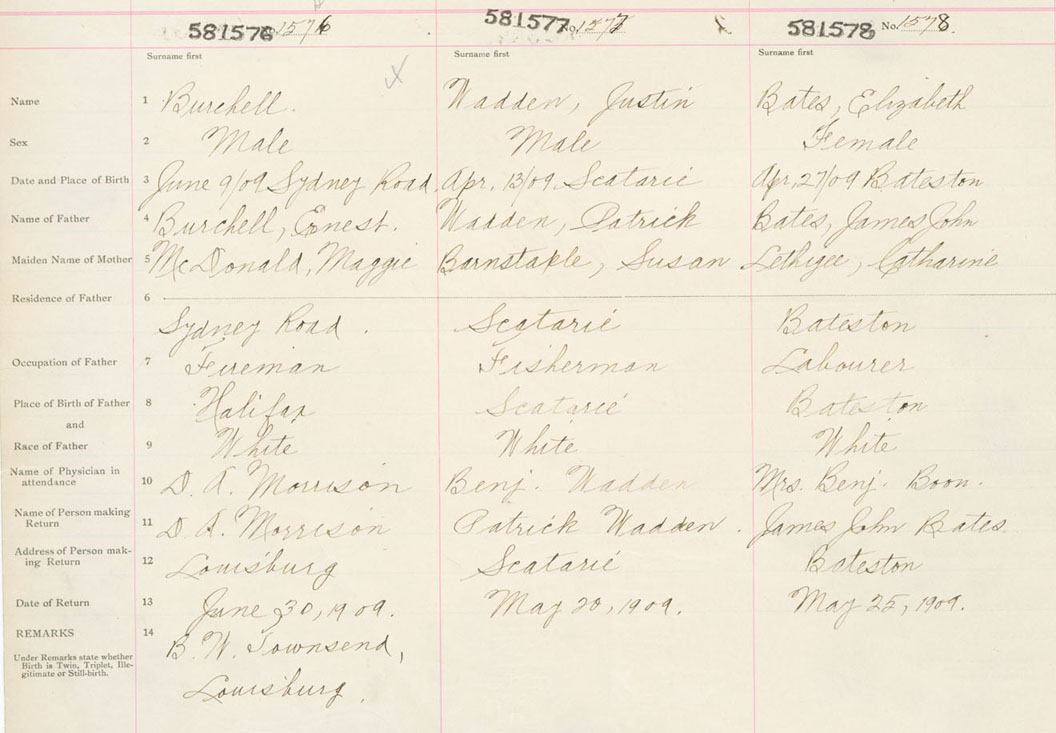 581576 1576 581577 No. 1577 581578 No. 1578.
Surname first Surname first Surname first
Name 1 Burchell. Wadden, Justin Bates, Elizabeth
Sex 2 Male Male Female
Date and Place of Birth 3 June 9/09 Sydney Road Apr. 13/09 Scatarie Apr, 27/09 Bateston
Name of Father 4 Burchell, Ernest. Wadden, Patrick Bates, James John
Maiden Name of Mother 5 McDonald, Maggie Barnstable, Susan Catharine
Residence of Father 6
Sydney Road. Scatarie Bateston
Occupation of Father 7 Fireman Fisherman Labourer
Place of Birth of Father 8 Halifax Scatarie Bateston
and
Race of Father 9 White White White
Name of Physician in
attendance 10 D. A. Morrison Benj. Wadden Mrs. Benj. Boon.
Name of Person making
Return 11 D A. Morrison Patrick Wadden. James John Bates.
Address of Person mak-
ing Return 12 Louisburg Scatarie Bateston
Date of Return 13 June 30, 1909. May 20, 1909. May 25, 1909.
REMARKS 14 B. W. Townsend,
Under Remarks state whether
Birth is Twin, Triplet, Ille-
gitimate or Still-birth.
Louisburg.